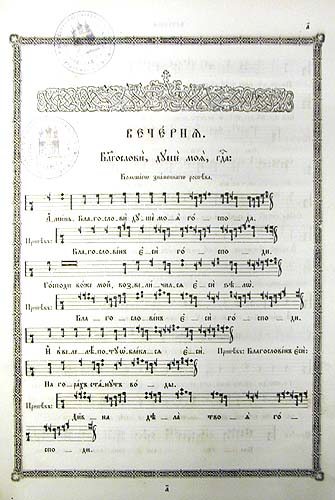 ВЕЧЕ́РНЯ.
Бл҃гословѝ, душѐ моѧ̀, гдⷭ҇а:
Большагѡ знаменнагѡ роспѣва.
А҆ми́нь. Бла - го - сло - вѝ дꙋ - шѐ мо - ѧ̀ го - спо - да.
Припѣвъ: Бла - го - сло - ве́нъ є҆ - сѝ го - спо - ди.
Го́споди бо́же мой, воз - ве - ли́ - чил - сѧ є҆сѝ ѕѣ - лѡ̀.
Припѣвъ: Бла - го - сло - ве́нъ є҆ - сѝ го - спо - ди.
Припѣвъ: Благослове́нъ є҆сѝ:
На го - ра́хъ ста́ - нꙋтъ во - ды.
Припѣвъ: Ди́в - на дѣ - ла̀ тво - ѧ̀ го -
спо - ди.